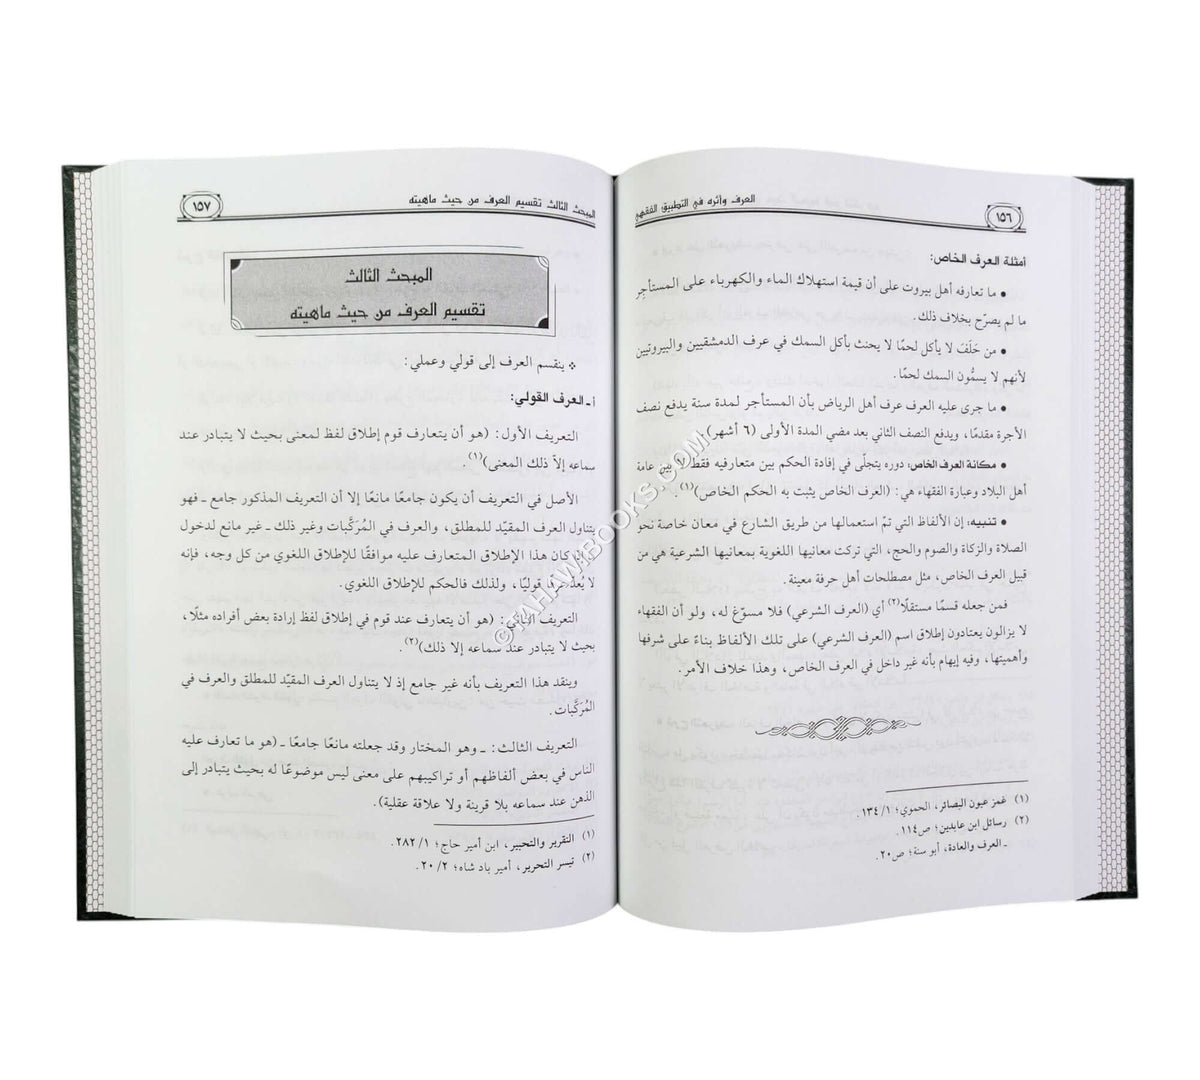 ١٥٦
العرف وأثره في التطبيق الفقهي
أمثلة العرف الخاص:
• ما تعارفه أهل بيروت على أن قيمة استهلاك الماء والكهرباء على المستأجِر
ما لم يصرّح بخلاف ذلك.
• من حَلَفَ لا يأكل لحمًا لا يحنث بأكل السمك في عرف الدمشقيين والبيروتيين
لأنهم لا يسمُّون السمك لحمًا.
• ما جرى عليه العرف عرف أهل الرياض بأن المستأجر لمدة سنة يدفع نصف
الأجرة مقدمًا، ويدفع النصف الثاني بعد مضي المدة الأولى (٦ أشهر).
• مكانة العرف الخاص: دوره يتجلّى في إفادة الحكم بين متعارفيه فقط بين عامة
أهل البلاد وعبارة الفقهاء هي: (العرف الخاص يثبت به الحكم الخاص)(١).
• تنبيه: إن الألفاظ التي تمّ استعمالها من طريق الشارع في معان خاصة نحو
الصلاة والزكاة والصوم والحج، التي تركت معانيها اللغوية بمعانيها الشرعية هي من
قبيل العرف الخاص، مثل مصطلحات أهل حرفة معينة.
فمن جعله قسمًا مستقلًا(٢) أي (العرف الشرعي) فلا مسوّغ له، ولو أن الفقهاء
لا يزالون يعتادون إطلاق اسم (العرف الشرعي) على تلك الألفاظ بناءً على شرفها
وأهميتها، وفيه إيهام بأنه غير داخل في العرف الخاص، وهذا خلاف الأمر.
(١) غمز عيون البصائر، الحموي؛ ١/ ١٣٤.
(٢) رسائل ابن عابدين؛ ص١١٤.
ـ العرف والعادة، أبو سنة؛ ص٢٠.
المبحث الثالث تقسيم العرف من حيث ماهيته
١٥٧
المبحث الثالث
تقسيم العرف من حيث ماهيته
* ينقسم العرف إلى قولي وعملي:
أ ـ العرف القولي:
التعريف الأول: (هو أن يتعارف قوم إطلاق لفظ لمعنى بحيث لا يتبادر عند
سماعه إلاّ ذلك المعنى)(١).
الأصل في التعريف أن يكون جامعًا مانعًا إلا أن التعريف المذكور جامع ـ فهو
يتناول العرف المقيّد للمطلق، والعرف في المُركَّبات وغير ذلك ـ غير مانع لدخول
كان هذا الإطلاق المتعارف عليه موافقًا للإطلاق اللغوي من كل وجه، فإنه
لا يُعدّ عرفًا قوليًا، ولذلك فالحكم للإطلاق اللغوي.
التعريف الثاني: (هو أن يتعارف عند قوم في إطلاق لفظ إرادة بعض أفراده مثلًا،
بحيث لا يتبادر عند سماعه إلا ذلك)(٢).
وينقد هذا التعريف بأنه غير جامع إذ لا يتناول العرف المقيّد للمطلق والعرف في
المُركَّبات.
التعريف الثالث: ـ وهو المختار وقد جعلته مانعًا جامعًا ـ (هو ما تعارف عليه
الناس في بعض ألفاظهم أو تراكيبهم على معنى ليس موضوعًا له بحيث يتبادر إلى
الذهن عند سماعه بلا قرينة ولا علاقة عقلية).
(١) التقرير والتحبير، ابن أمير حاج؛ ١/ ٢٨٢.
(٢) تيسر التحرير، أمير باد شاه؛ ٢/ ٢٠.
©TAHAWIBOOKS.COM